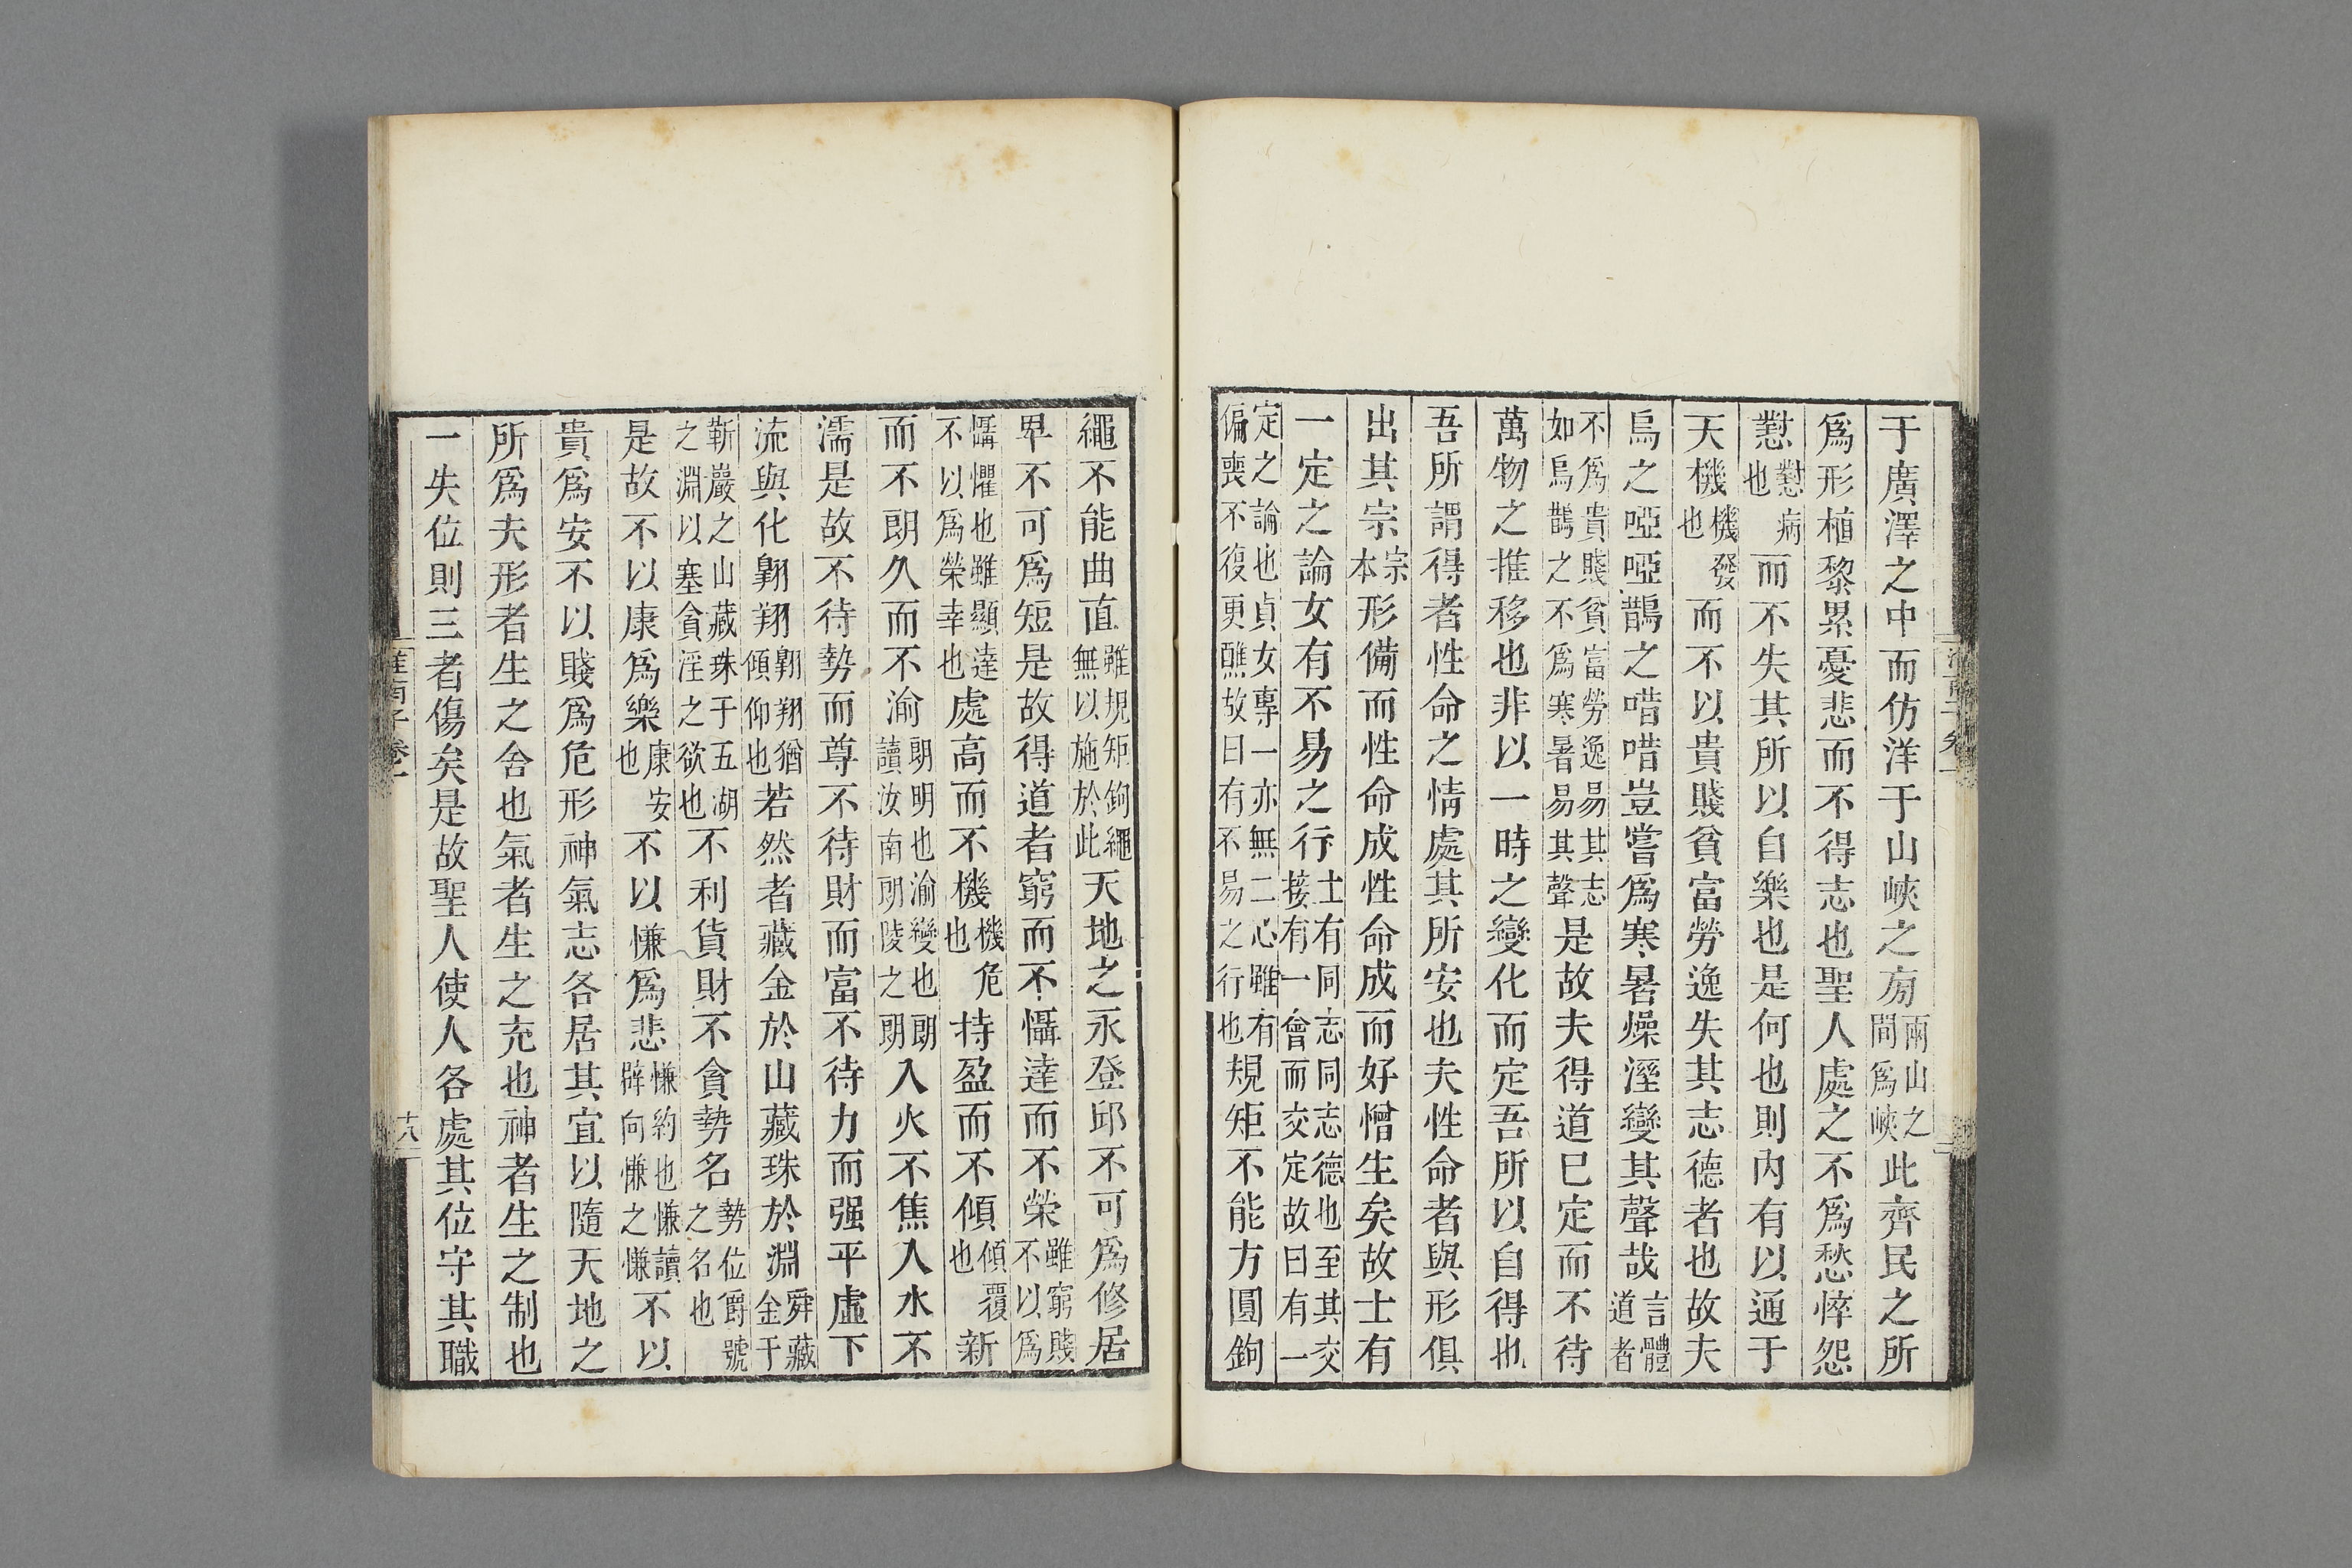 于廣澤之中而仿洋于山峽之旁兩山之間爲峽此齊民之所
爲形植黎累憂悲而不得志也聖人處之不爲愁悴怨
懟懟病也而不失其所以自樂也是何也則內有以通于
天機機發也而不以貴賤貧富勞逸失其志德者也故夫
烏之啞啞鵲之唶唶豈嘗爲寒暑燥溼變其聲哉言體道者
不爲貴賤貧富勞逸易其志如烏鵲之不爲寒暑易其聲是故夫得道已定而不待
萬物之推移也非以一時之變化而定吾所以自得也
吾所謂得者性命之情處其所安也夫性命者與形俱
出其宗宗本形備而性命成性命成而好憎生矣故士有
一定之論女有不易之行士有同志同志德也至其交接有一會而交定故曰有一
定之論也貞女專一亦無二心雖有偏喪不復更醮故曰有不易之行也規矩不能方圓鉤
繩不能曲直雖規矩鉤繩無以施於此天地之永登邱不可爲修居
卑不可爲短是故得道者窮而不懾達而不榮雖窮賤不以爲
懾懼也雖顯達不以爲榮幸也處高而不機機危也持盈而不傾傾覆也新
而不朗久而不渝朗明也渝變也朗讀汝南朗陵之朗入火不焦入水不
濡是故不待勢而尊不待財而富不待力而强平虛下
流與化翺翔翺翔猶傾仰也若然者藏金於山藏珠於淵舜藏金于
嶄巖之山藏珠于五湖之淵以塞貪淫之欲也不利貨財不貪勢名勢位爵號之名也
是故不以康爲樂康安也不以慊爲悲慊約也慊讀辟向慊之慊不以
貴爲安不以賤爲危形神氣志各居其宜以隨天地之
所爲夫形者生之舍也氣者生之充也神者生之制也
一失位則三者傷矣是故聖人使人各處其位守其職
淮南子卷一
十八